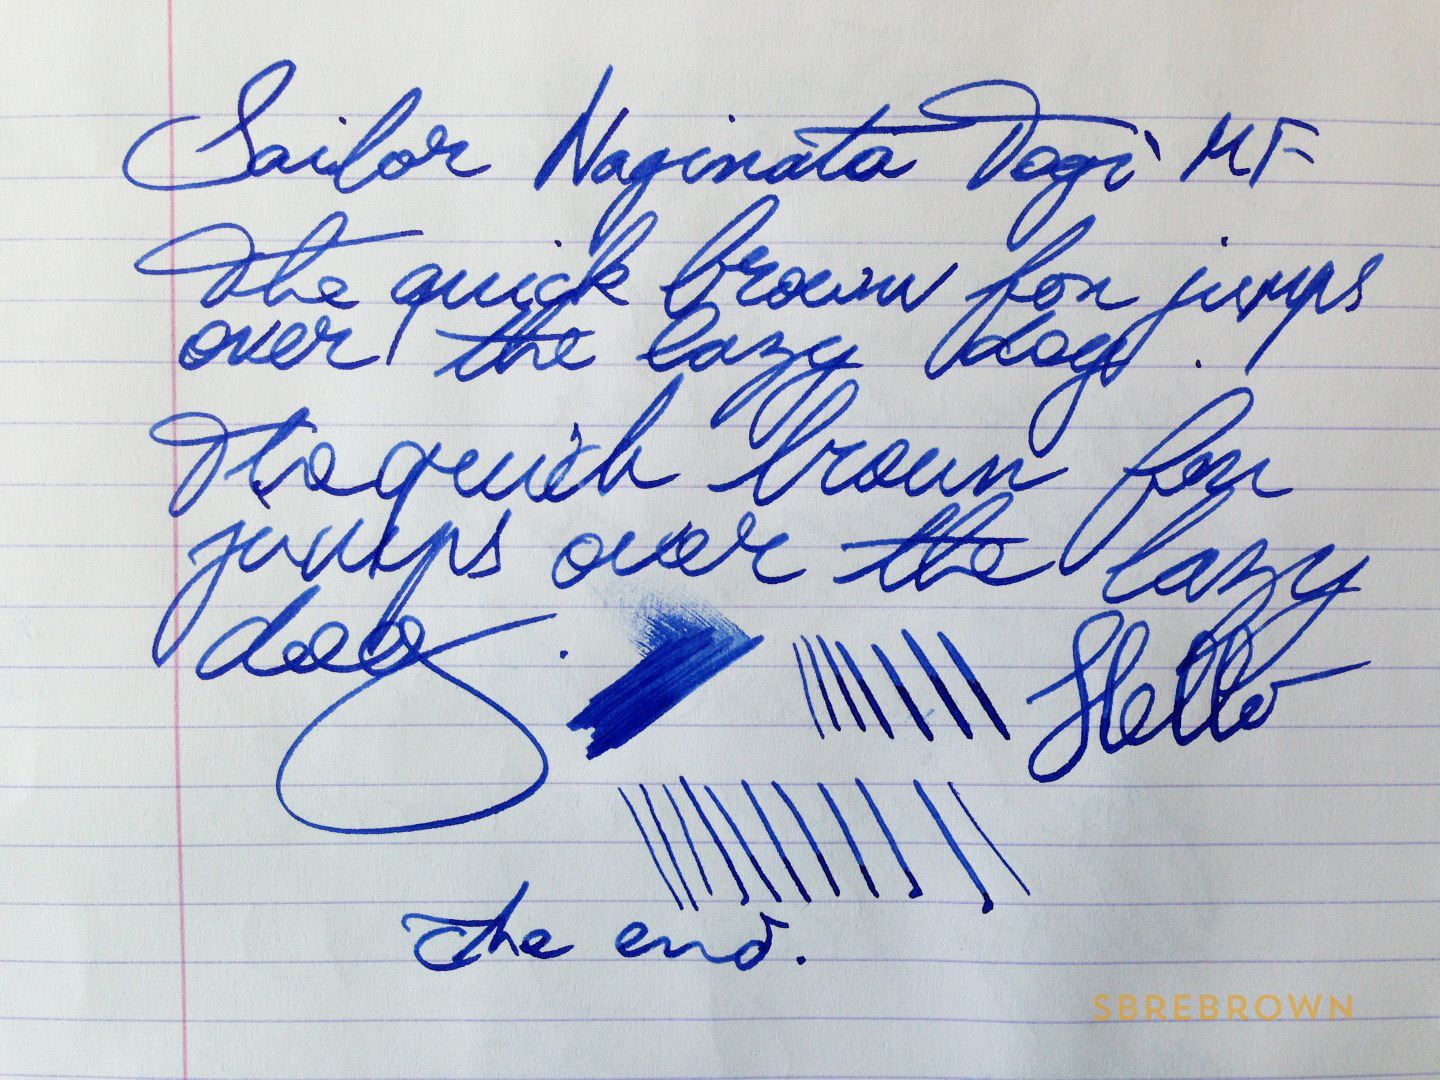 Sailor Naginata Togi MF
The quick brown fox jumps
over the lazy dog.
The quick brown fox
jumps over the lazy
dog.
Hello
the end.
SBREBROWN